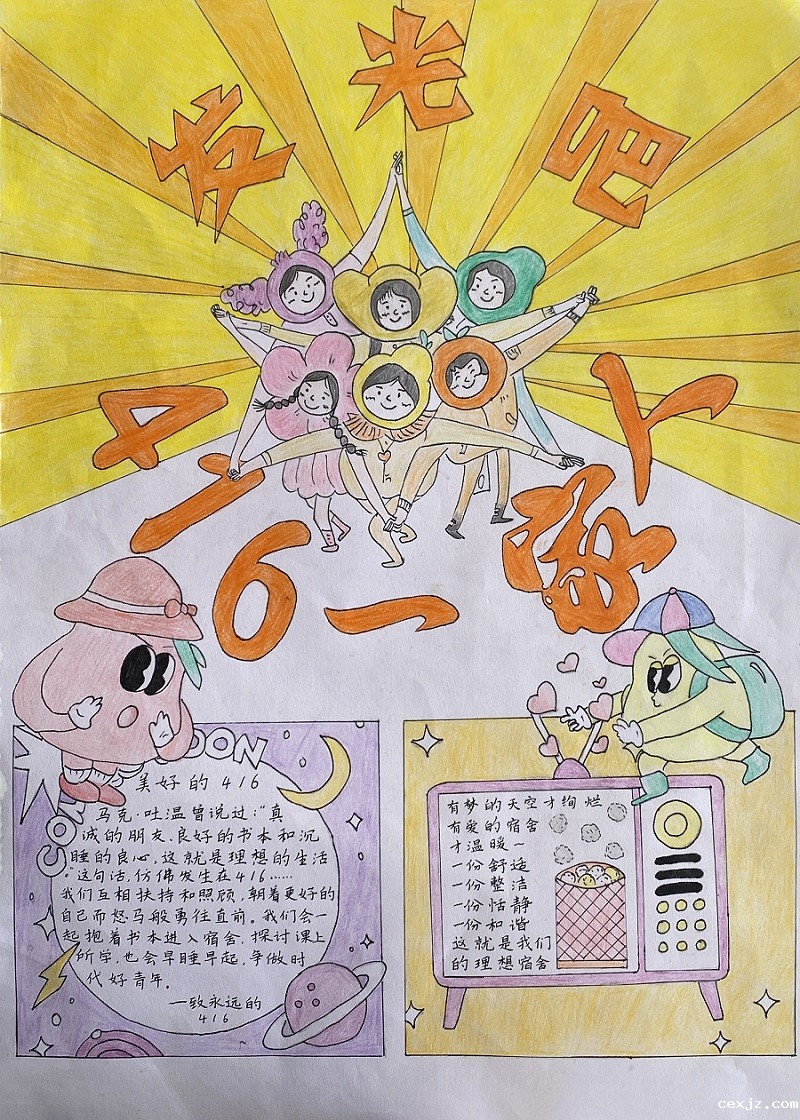 发光吧
416一家人
COON
美好的416
马克·吐温曾说过："真
诚的朋友、良好的书本和沉
睡的良心，这就是理想的生活
"这句话，仿佛发生在416……
我们互相扶持和照顾，朝着更好的
自己而怒马般勇往直前。我们会一
起抱着书本进入宿舍，探讨课上
所学，也会早睡早起，争做时
代好青年。
一致永远的
416
有梦的天空才绚烂
有爱的宿舍
才温暖~
一份舒适
一份整洁
一份恬静
一份和谐
这就是我们
的理想宿舍
cexjz.com